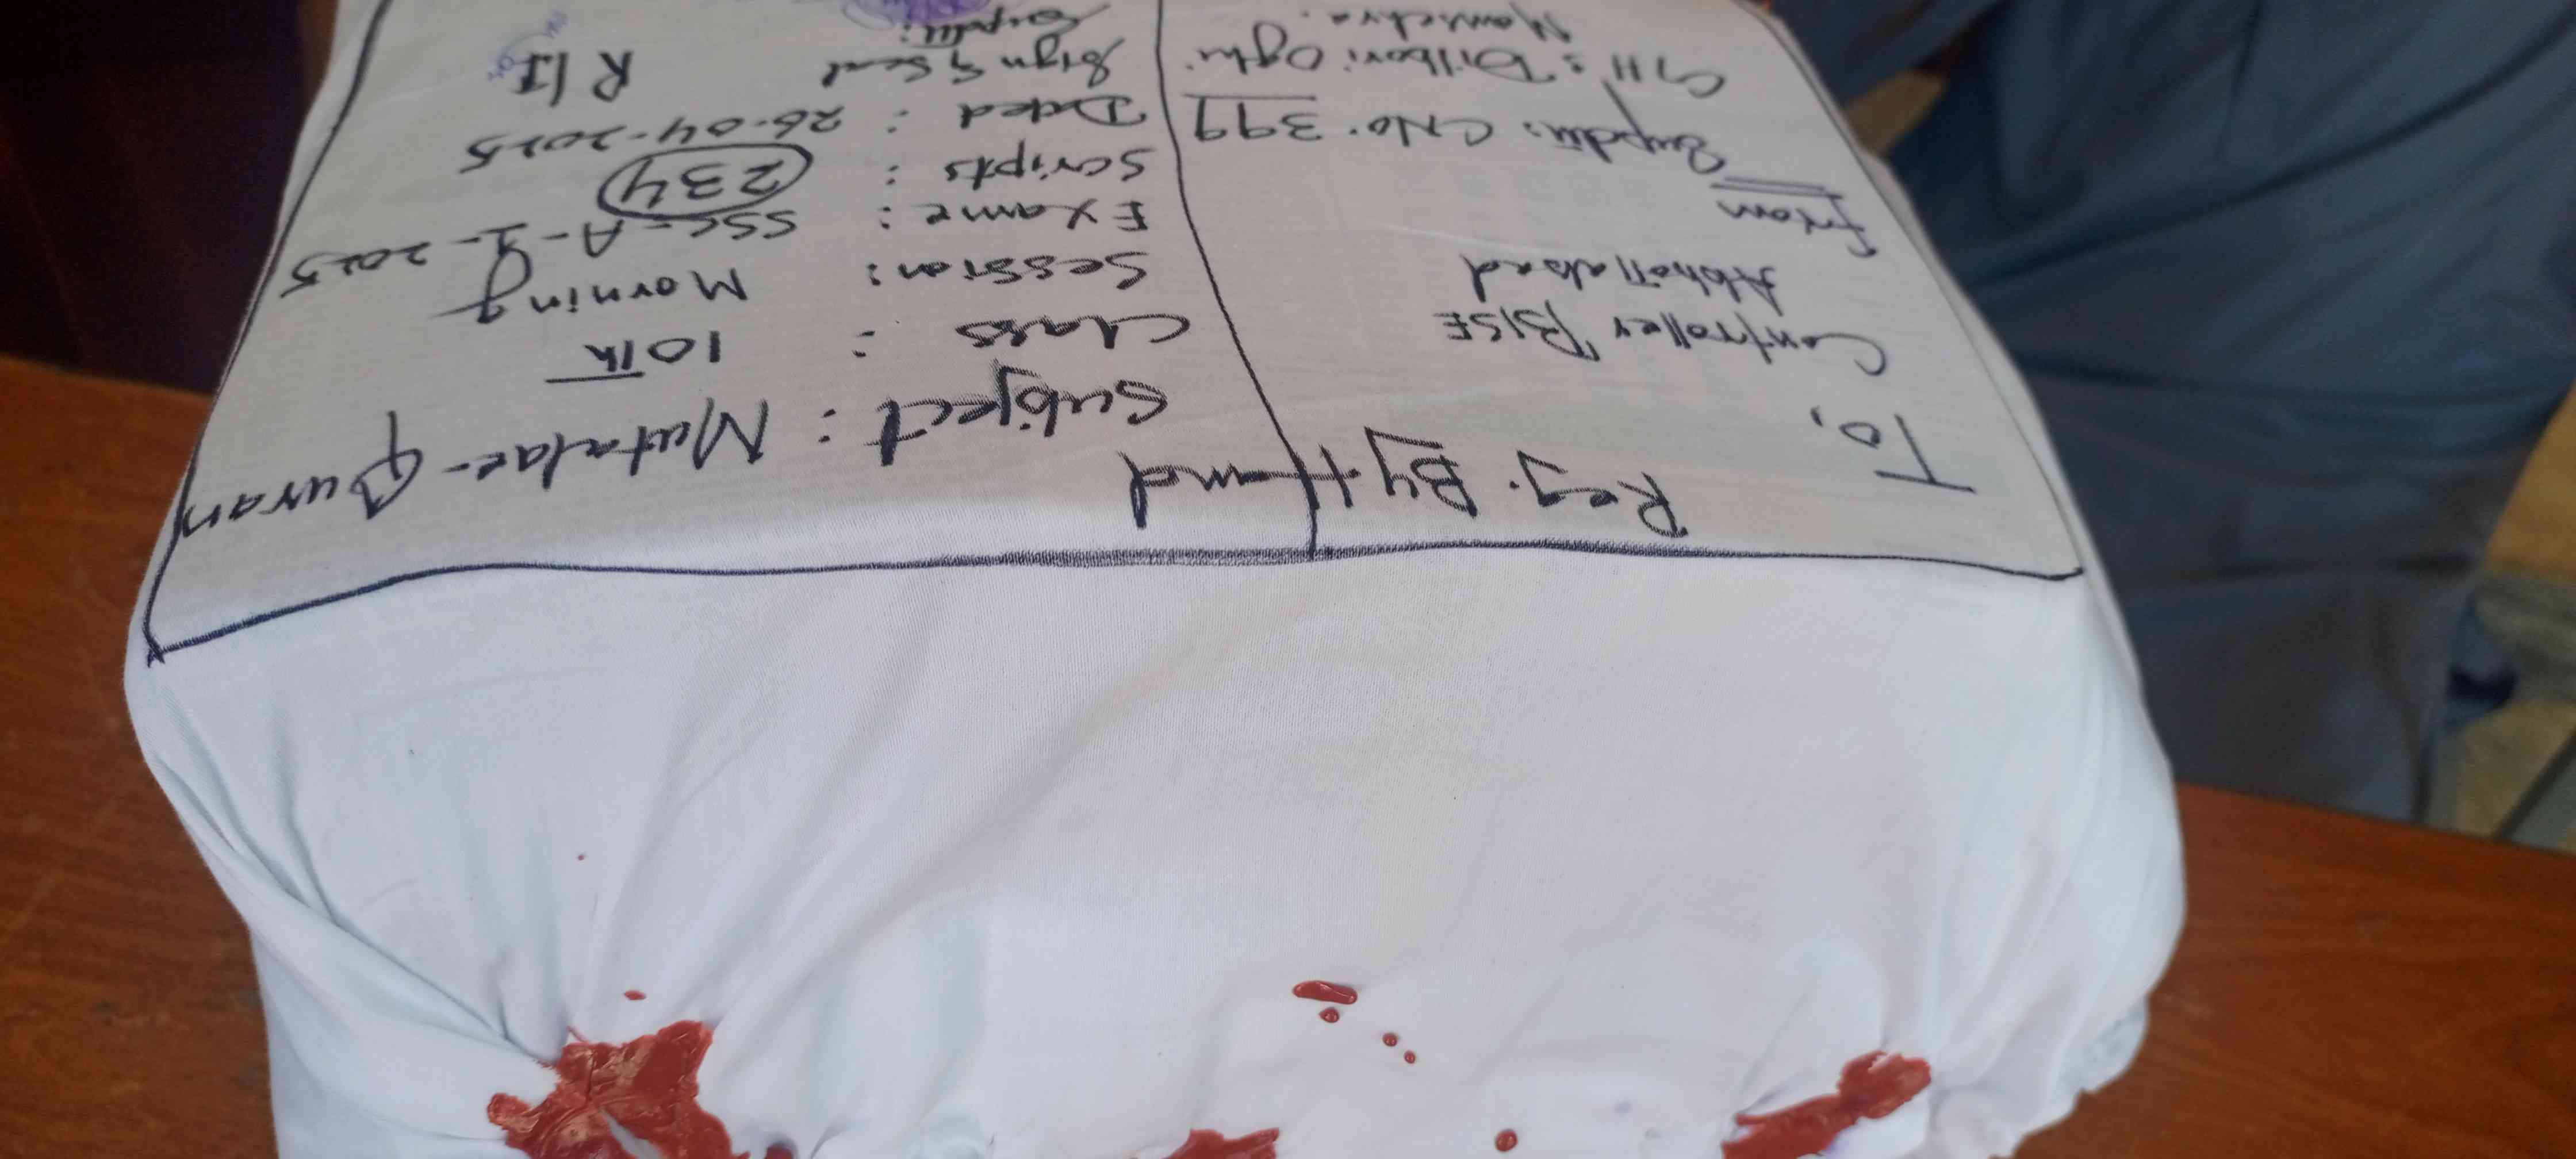 Reg. By Hand
To,
Controller BISE
Abbottabad
From
Supdtt: CNo. 399
GH: Dilbori Oghi
Mansehra.
Subject : Mutalae-Quran
Class : 10th
Session: Morning
Exame: SSC-A-I-2025
Scripts : 234
Dated : 26-04-2025
Sign & Seal
Supdtt:
R/I